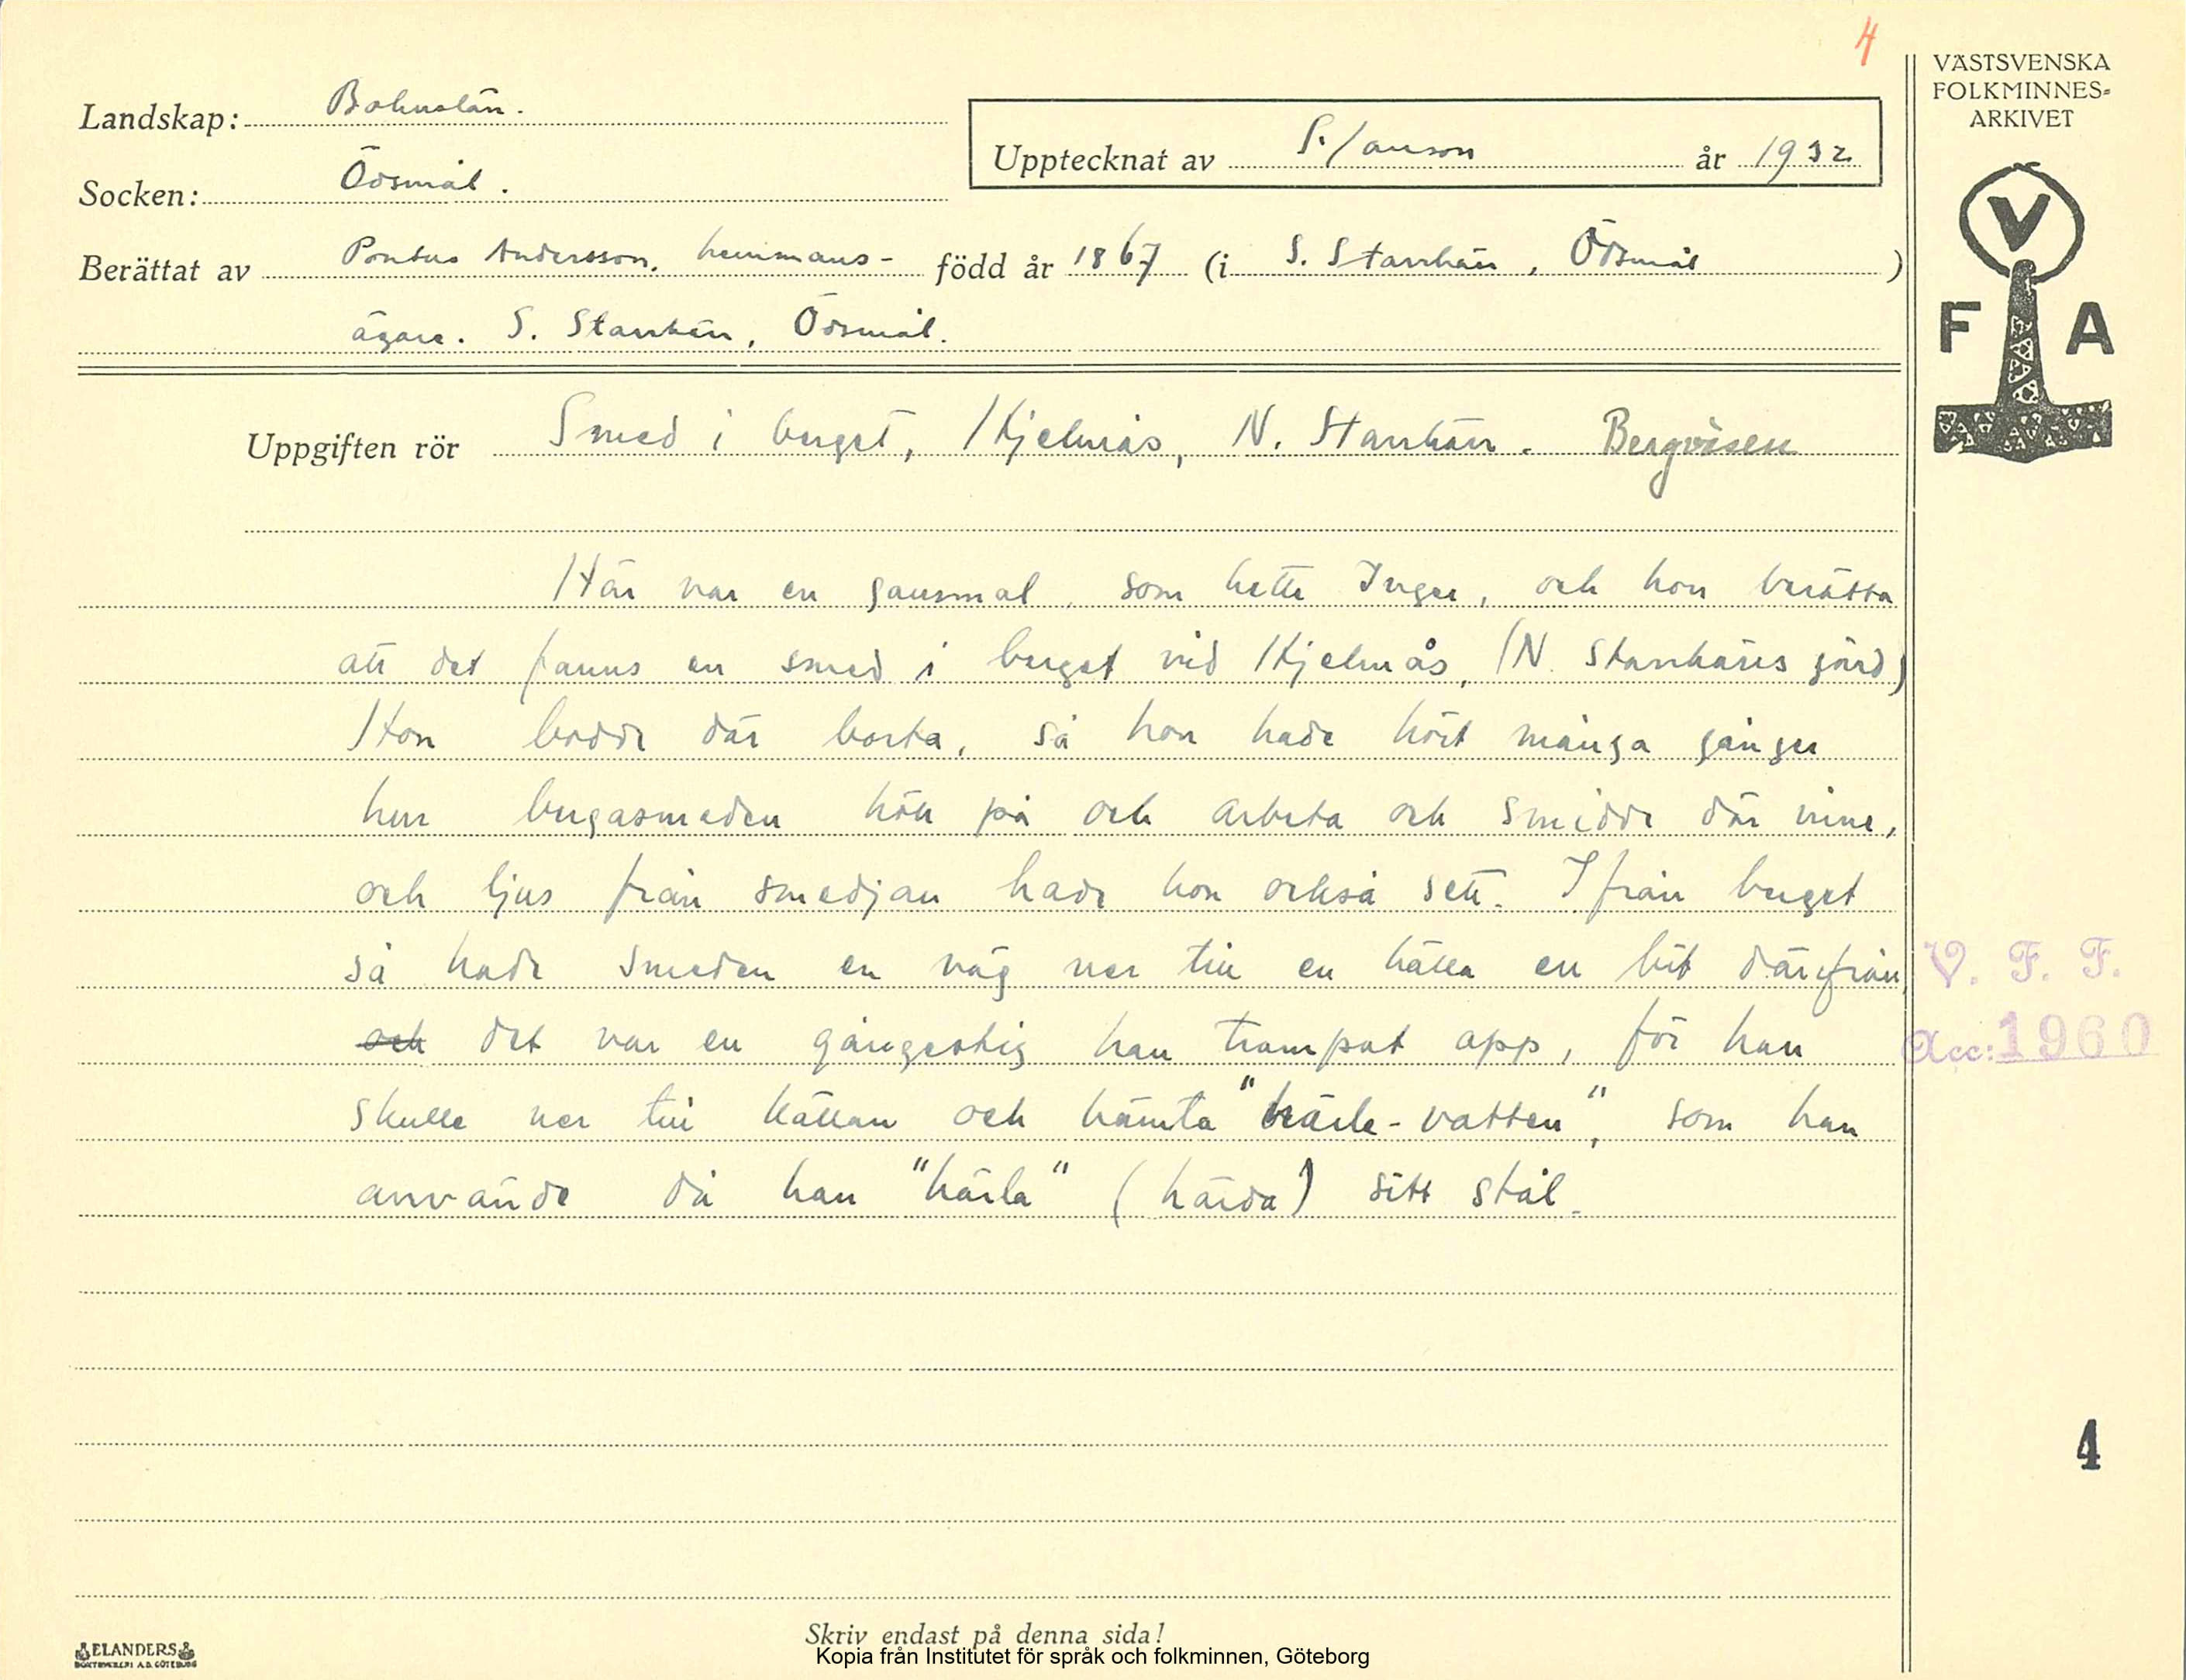 4
VÄSTSVENSKA
FOLKMINNES=
ARKIVET
Landskap: Bohuslän.
Upptecknat av S. Janson år 1932
Socken: Ödsmål.
Berättat av Pontus Andersson, hemmans- född år 1867 (i S. Starrkärr, Ödsmål)
ägare. S. Starrkärr, Ödsmål.
V
F A
Uppgiften rör Smed i berget, Hjelmås, N. Starrkärr. Bergväsen
Här var en som hette Inger, och hon berätta
att det fanns en smed i berget vid Hjelmås, (N. Starrkärrs gård)
Hon bodde där borta, så hon hade hört många gånger
hur bergasmeden höll på och arbeta och smidde där inne,
och ljus från smedjan hade hon också sett. Ifrån berget
så hade smeden en väg ner till en källa en bit därifrån,
och det var en gångestig han trampat opp, för han
skulle ner till källan och hämta "härle-vatten", som han
använde då han "härla" (härda) sitt stål.
V. F. F.
Acc: 1960
4
Skriv endast på denna sida!
ELANDERS
BOKTRYCKERI A.B. GÖTEBORG
Kopia från Institutet för språk och folkminnen, Göteborg